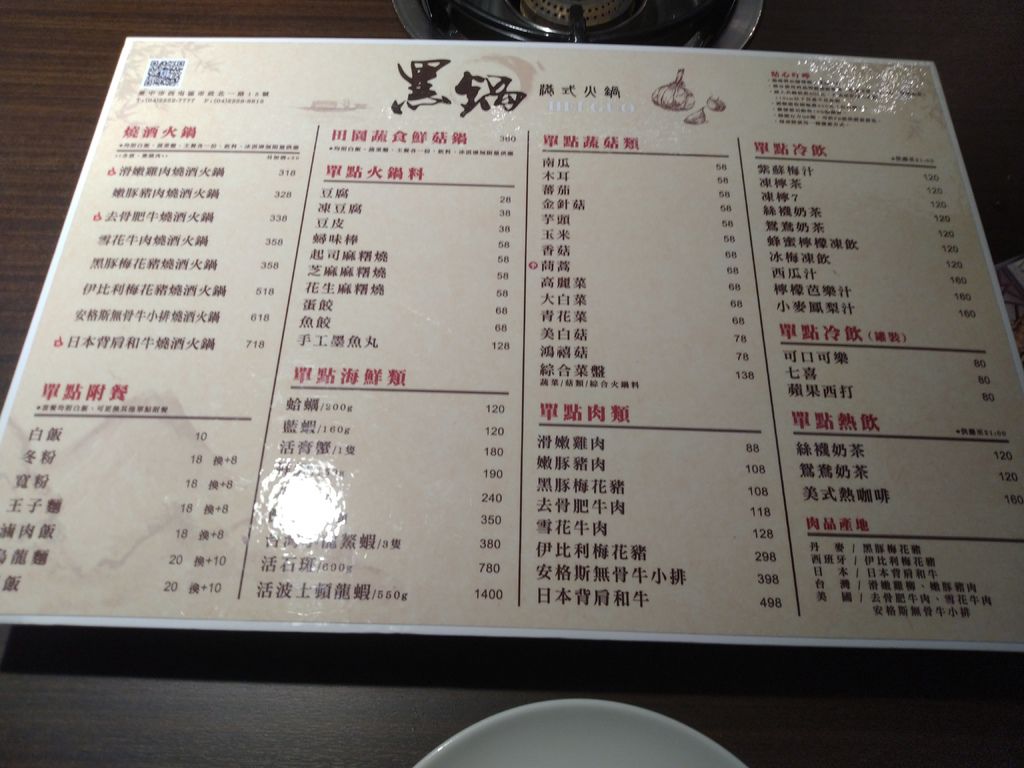 黑鍋
火鍋
HEI GUO
燒酒火鍋
滑嫩雞肉燒酒火鍋 318
嫩豚豬肉燒酒火鍋 328
去骨肥牛燒酒火鍋 338
雪花牛肉燒酒火鍋 358
黑豚梅花豬燒酒火鍋 358
伊比利梅花豬燒酒火鍋 518
安格斯無骨牛小排燒酒火鍋 618
日本背肩和牛燒酒火鍋 718
單點附餐
白飯 10
冬粉 18 換+8
寬粉 18 換+8
王子麵 18 換+8
滷肉飯 18 換+8
烏龍麵 20 換+10
飯 20 換+10
田園蔬食鮮菇鍋 360
單點火鍋料
豆腐 28
凍豆腐 38
豆皮 38
蟳味棒 58
起司麻糬燒 58
芝麻麻糬燒 58
花生麻糬燒 58
蛋餃 68
魚餃 68
手工墨魚丸 128
單點海鮮類
蛤蠣/200g 120
藍蝦/160g 120
活膏蟹/1隻 180
190
240
350
蝦/3隻 380
活石斑/600g 780
活波士頓龍蝦/550g 1400
單點蔬菇類
南瓜 58
木耳 58
蕃茄 58
金針菇 58
芋頭 58
玉米 58
香菇 68
茼蒿 68
高麗菜 68
大白菜 68
青花菜 68
美白菇 78
鴻禧菇 78
綜合菜盤 138
蔬菜/菇類/綜合火鍋料
單點肉類
滑嫩雞肉 88
嫩豚豬肉 108
黑豚梅花豬 108
去骨肥牛肉 118
雪花牛肉 128
伊比利梅花豬 298
安格斯無骨牛小排 398
日本背肩和牛 498
單點冷飲
紫蘇梅汁 120
凍檸茶 120
凍檸7 120
絲襪奶茶 120
鴛鴦奶茶 120
蜂蜜檸檬凍飲 120
冰梅凍飲 120
西瓜汁 160
檸檬芭樂汁 160
小麥鳳梨汁 160
單點冷飲(罐裝)
可口可樂 80
七喜 80
蘋果西打 80
單點熱飲
絲襪奶茶 120
鴛鴦奶茶 120
美式熱咖啡 160
肉品產地
丹麥/黑豚梅花豬
西班牙/伊比利梅花豬
日本/日本背肩和牛
台灣/滑嫩雞柳、嫩豚豬肉
美國/去骨肥牛肉、雪花牛肉
安格斯無骨牛小排